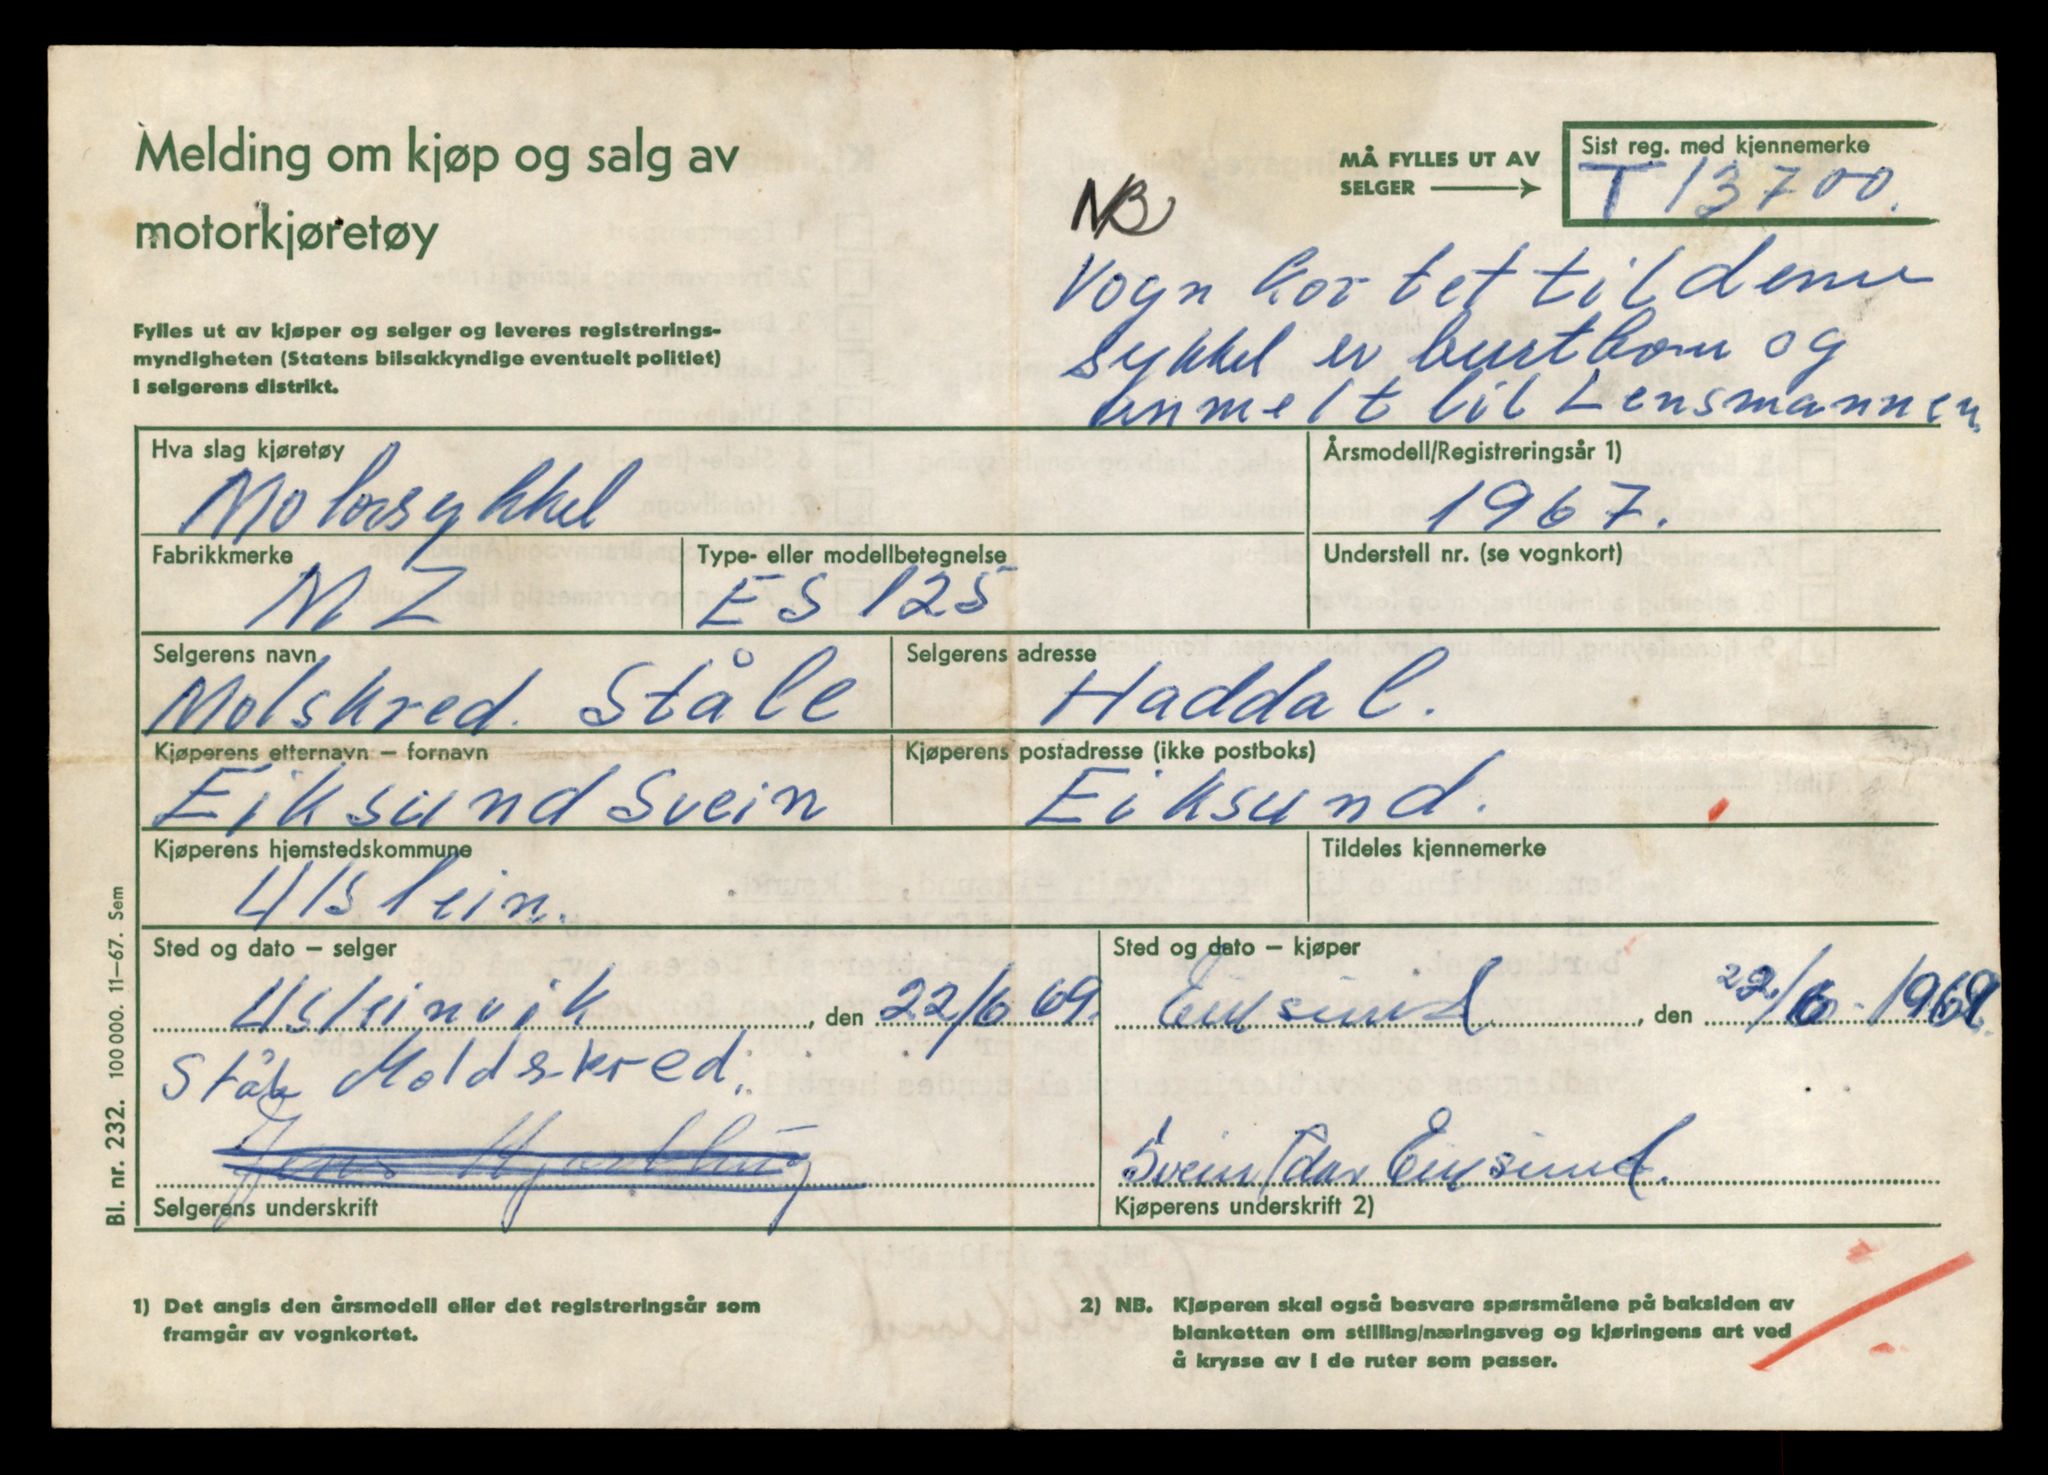 Melding om kjøp og salg av
motorkjøretøy
MÅ FYLLES UT AV
SELGER
Sist reg. med kjennemerke
T 13700.
NB
Vognkortet til denne
sykkel er burtkom og
anmelt til Lensmannen.
Fylles ut av kjøper og selger og leveres registrerings-
myndigheten (Statens bilsakkyndige eventuelt politiet)
i selgerens distrikt.
Hva slag kjøretøy
Motorsykkel
Årsmodell/Registreringsår 1)
1967.
Fabrikkmerke
MZ
Type- eller modellbetegnelse
ES 125
Understell nr. (se vognkort)
Selgerens navn
Molskred. Ståle
Selgerens adresse
Haddal.
Kjøperens etternavn – fornavn
Eiksund Svein
Kjøperens postadresse (ikke postboks)
Eiksund.
Kjøperens hjemstedskommune
Ulstein.
Tildeles kjennemerke
Sted og dato – selger
Ulsteinvik, den 22/6 69.
Sted og dato – kjøper
Eiksund, den 22/6-1969.
Ståle Moldskred.
Svein Idar Eiksund.
Selgerens underskrift
Kjøperens underskrift 2)
Bl. nr. 232. 100 000. 11–67. Sem
1) Det angis den årsmodell eller det registreringsår som
framgår av vognkortet.
2) NB. Kjøperen skal også besvare spørsmålene på baksiden av
blanketten om stilling/næringsveg og kjøringens art ved
å krysse av i de ruter som passer.